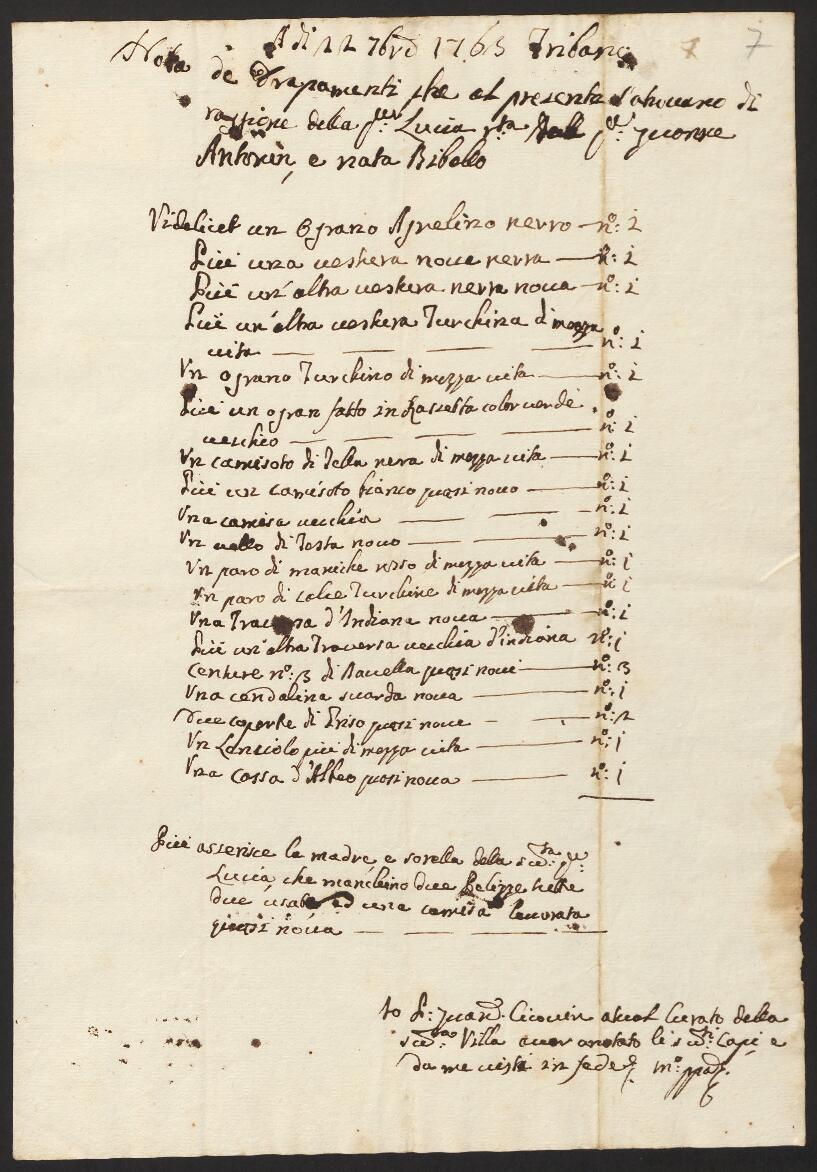 7
Adi 22 7bre 1763 Tribano
Nota de Drapamenti che al presente s'atrovano di
raggione della qm Lucia rta dall qm Zuanne
Antonin, e nata Bibalo
Videlicet un Ograno Agnelino nerro n.o: 1
Più una veshera nova nerra n.o: 1
Più un'altra veshera nerra nova n.o: 1
Più un'altra veshera Turchina di mezza
vita n.o: 1
Un ograno Turchino di mezza vita n.o: 1
Più un ogran fatto in Rassetta color verde
vecchio n.o: 1
Un camisoto di Tella nera di mezza vita n.o: 1
Più un camisoto bianco quasi novo n.o: 1
Una camisa vecchia n.o: 1
Un vello di Testa novo n.o: 1
Un paro di maniche rosso di mezza vita n.o: 1
Un paro di calce Turchine di mezza vita n.o: 1
Una Traversa d'Indiana nova n.o: 1
Più un'altra Traversa vecchia d'indiana n.o: 1
Centure n.o: 3 di Bavella quasi novi n.o: 3
Una cendalina suarda nova n.o: 1
Due coperte di Griso quasi nove n.o: 2
Un Lenziolo più di mezza vita n.o: 1
Una Cassa d'Albeo quasi nova n.o: 1
Più asserisce la madre, e sorella della sudta qm:
Lucia, che manchino due Pelizze tutte
due usate ed una camisa lavorata
quasi nova
Io P: Zuane Cicovin atual Curato della
sudta Villa aver anotato li sudti Capi e
da me visti in fede mo ppa